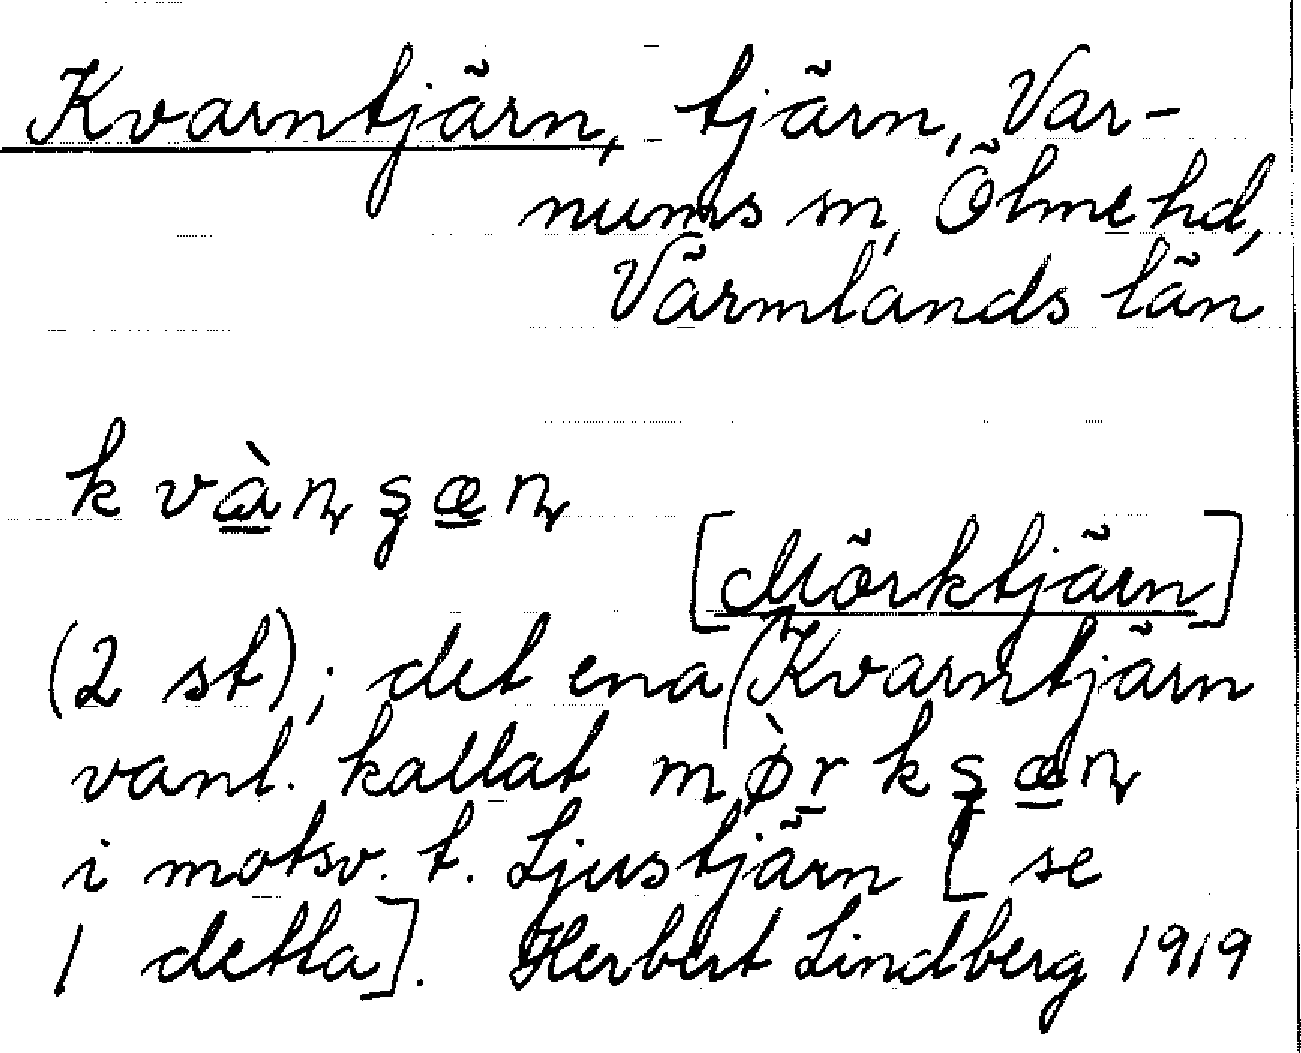 Kvarntjärn, tjärn, Var-
nums sn, Ölme hd,
Värmlands län
kvàṇʂæṇ
[Mörktjärn]
(2 st); det ena (Kvarntjärn
vanl. kallat mø̀rkʂæṇ
i motsv. t. Ljustjärn [se
1 detta]. Herbert Lindberg 1919